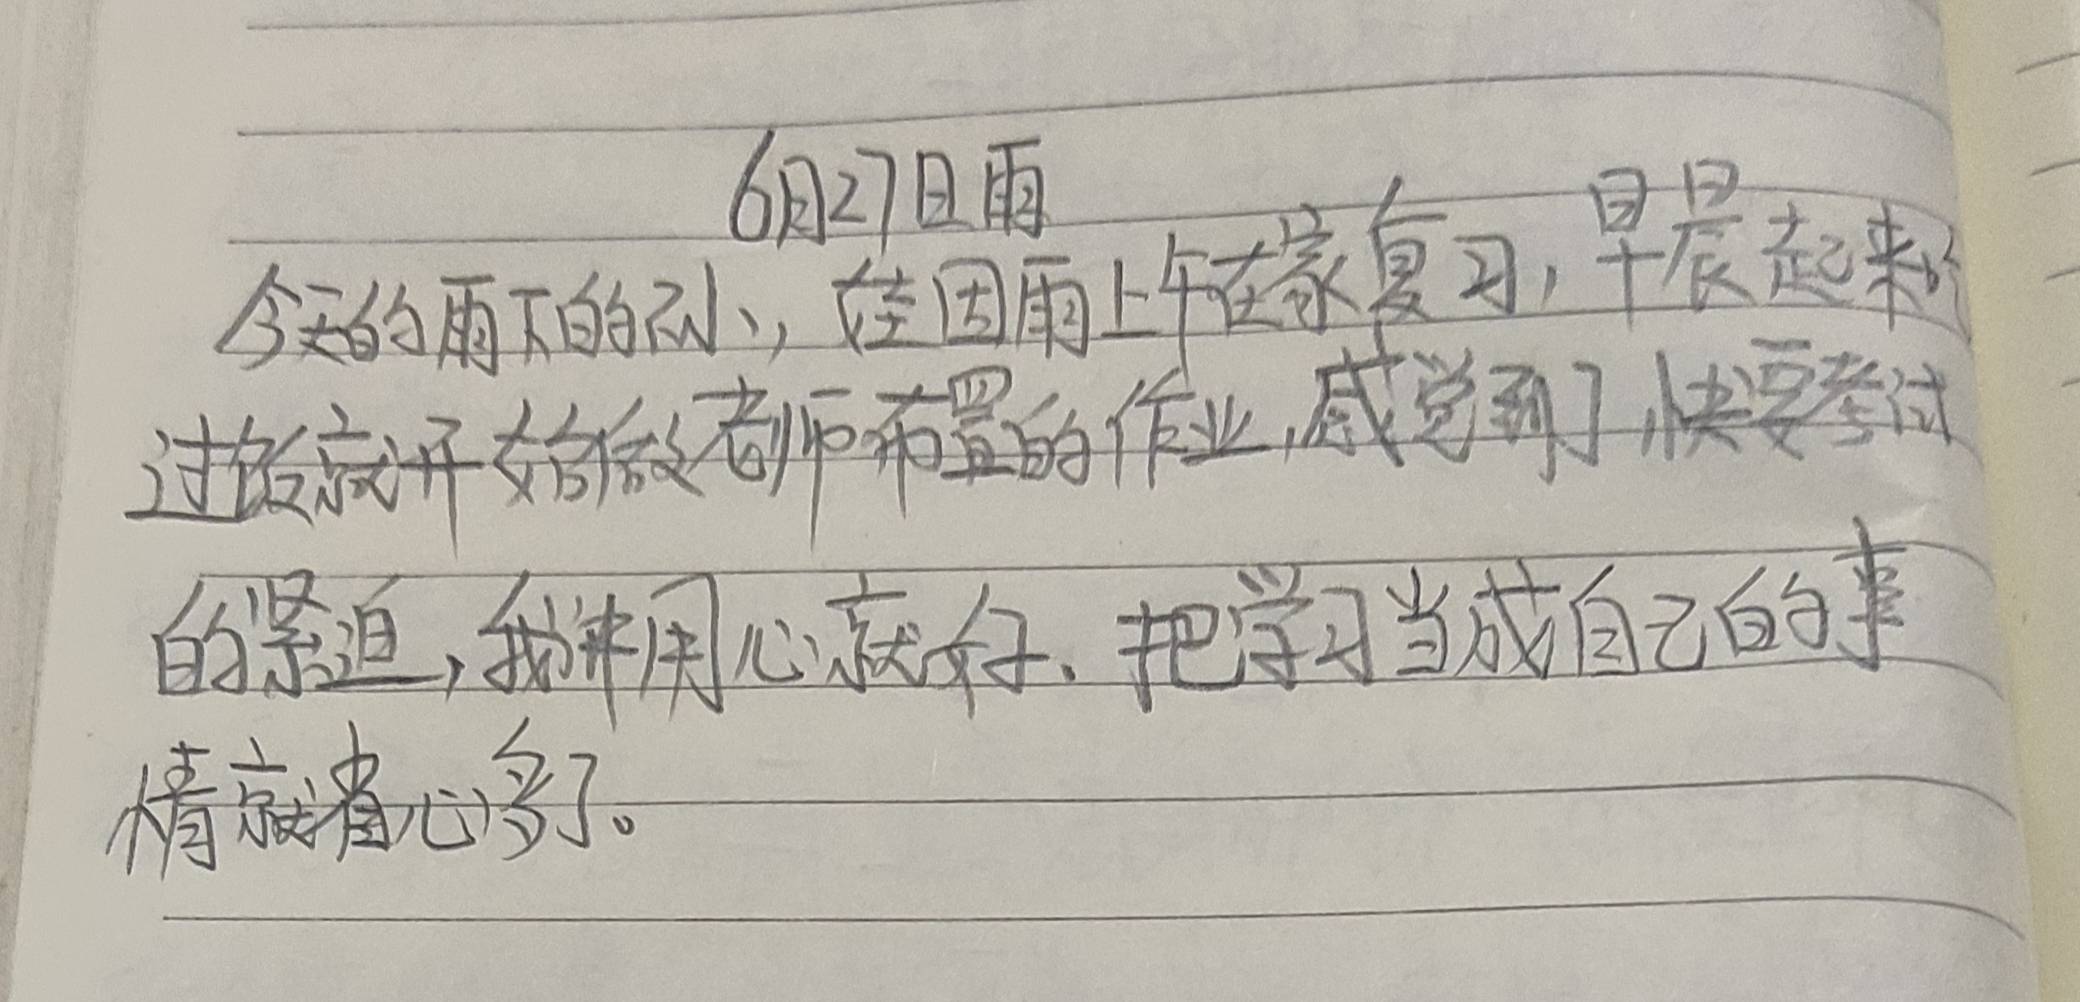 6月27日雨
今天的雨下的不小,,娃因雨上午在家复习，早晨起来吃
过饭就开始做老师布置的作业,感觉到了快要考试
的紧迫，我讲用心就好、把学习当成自己的事
情就省心多了。